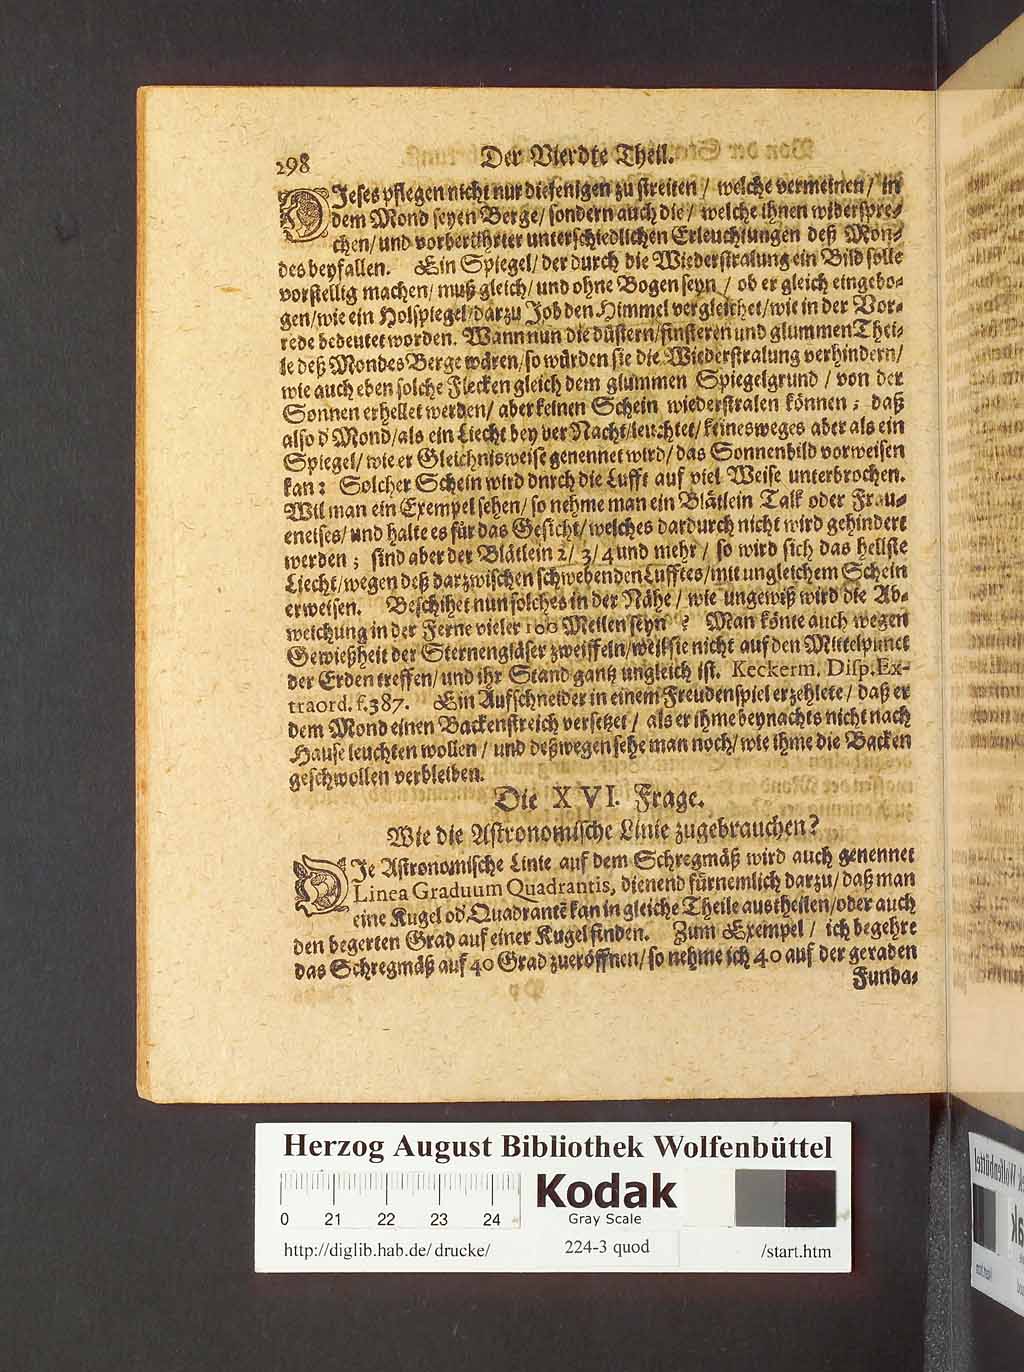 298 Der Vierdte Theil.
DIeses pflegen nicht nur diejenigen zu streiten / welche vermeinen / in
dem Mond seyen Berge / sondern auch die / welche ihnen widerspre-
chen / und vorberührter unterschiedlichen Erleuchtungen deß Mon-
des beyfallen. Ein Spiegel / der durch die Wiederstralung ein Bild solle
vorstellig machen / muß gleich / und ohne Bogen seyn / ob er gleich eingebo-
gen / wie ein Holspiegel / darzu Job den Himmel vergleichet / wie in der Vor-
rede bedeutet worden. Wann nun die düstern / finsteren und glummen Thei-
le deß Mondes Berge wären / so würden sie die Wiederstralung verhindern /
wie auch eben solche Flecken gleich dem glummen Spiegelgrund / von der
Sonnen erhellet werden / aber keinen Schein wiederstralen können ; daß
also d' Mond / als ein Liecht bey der Nacht / leuchtet / keinesweges aber als ein
Spiegel / wie er Gleichnisweise genennet wird / das Sonnenbild vorweisen
kan : Solcher Schein wird dnrch die Lufft auf viel Weise unterbrochen.
Wil man ein Exempel sehen / so nehme man ein Blätlein Talk oder Frau-
eneises / und halte es für das Gesicht / welches dardurch nicht wird gehindert
werden ; sind aber der Blätlein 2 / 3 / 4 und mehr / so wird sich das hellste
Liecht / wegen deß darzwischen schwebenden Lufftes / mit ungleichem Schein
erweisen. Beschihet nun solches in der Nähe / wie ungewiß wird die Ab-
weichung in der Ferne vieler 100 Meilen seyn ? Man könte auch wegen
Gewießheit der Sternengläser zweiffeln / weil sie nicht auf den Mittelpunct
der Erden treffen / und ihr Stand gantz ungleich ist. Keckerm. Disp. Ex-
traord. f. 387. Ein Aufschneider in einem Freudenspiel erzehlete / daß er
dem Mond einen Backenstreich versetzet / als er ihme beynachts nicht nach
Hause leuchten wollen / und deßwegen sehe man noch / wie ihme die Backen
geschwollen verbleiben.
Die XVI. Frage.
Wie die Astronomische Linie zugebrauchen?
DIe Astronomische Linie auf dem Schregmäß wird auch genennet
Linea Graduum Quadrantis, dienend fürnemlich darzu / daß man
eine Kugel od' Quadrantē kan in gleiche Theile austheilen / oder auch
den begerten Grad auf einer Kugel finden. Zum Exempel / ich begehre
das Schregmäß auf 40 Grad zueröffnen / so nehme ich 40 auf der geraden
Funda-
Herzog August Bibliothek Wolfenbüttel
0 21 22 23 24
Kodak
Gray Scale
http://diglib.hab.de/drucke/ 224-3 quod /start.htm